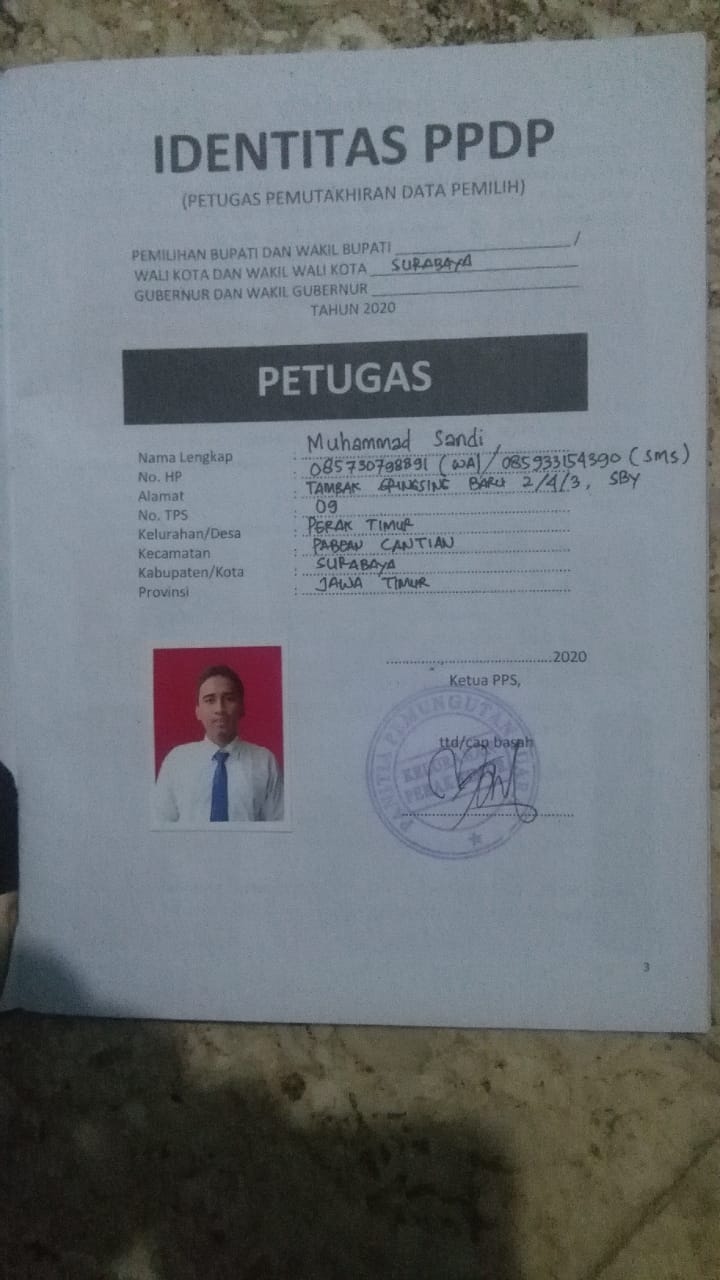 IDENTITAS PPDP
(PETUGAS PEMUTAKHIRAN DATA PEMILIH)
PEMILIHAN BUPATI DAN WAKIL BUPATI /
WALI KOTA DAN WAKIL WALI KOTA SURABAYA
GUBERNUR DAN WAKIL GUBERNUR
TAHUN 2020
PETUGAS
Nama Lengkap : Muhammad Sandi
No. HP : 085730798891 (WA) / 085933154390 (SMS)
Alamat : TAMBAK GRINGSING BARU 2/4/3, SBY
No. TPS : 09
Kelurahan/Desa : PERAK TIMUR
Kecamatan : PABEAN CANTIAN
Kabupaten/Kota : SURABAYA
Provinsi : JAWA TIMUR
2020
Ketua PPS,
PANITIA PEMUNGUTAN SUARA
ttd/cap basah
3